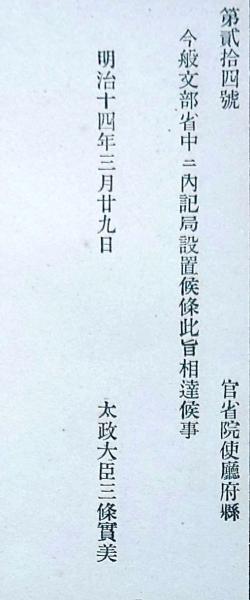 第貳拾四號 官省院使廳府縣
今般文部省中ニ內記局設置候條此旨相達候事
明治十四年三月廿九日 太政大臣三條實美